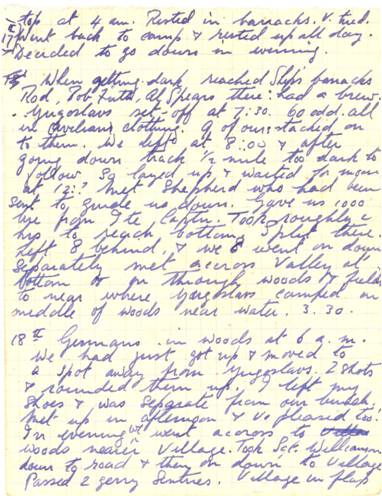 top at 4 am. Rested in barracks. V. tired.
17 Went back to camp & rested up all day.
Decided to go down in evening.
When getting dark reached Slip's barracks
Rod, Bob Futa, Alf Spears there. Had a brew.
Yugoslavs set off at 7:30. 60 odd all
in Civilian clothing. 9 of ours tacked on
to them. We left at 8:00 & after
going down back 1/2 mile too dark to
follow so layed up & waited for moon
at 12:? Met Shepherd who had been
sent to guide us down. Gave us 1000
lire from Ite Captn. Took roughly 2
hrs to reach bottom. Slept there.
Left 8 behind, & we 8 went on down
separately met accross Valley at
bottom & on through woods & fields
to near where Yugoslavs camped in
middle of woods near water. 3.30.
18th Germans in woods at 6 a.m.
We had just got up & moved to
a spot away from Yugoslavs. 2 shots
& rounded them up, I left my
shoes & was separate from our bunch.
Met up in afternoon & v. pleased too.
In evening we went accross to
woods nearer Village. Took Scf. Williamson
down to road & then on down to Village
Passed 2 gerry Sentries. Village in flap